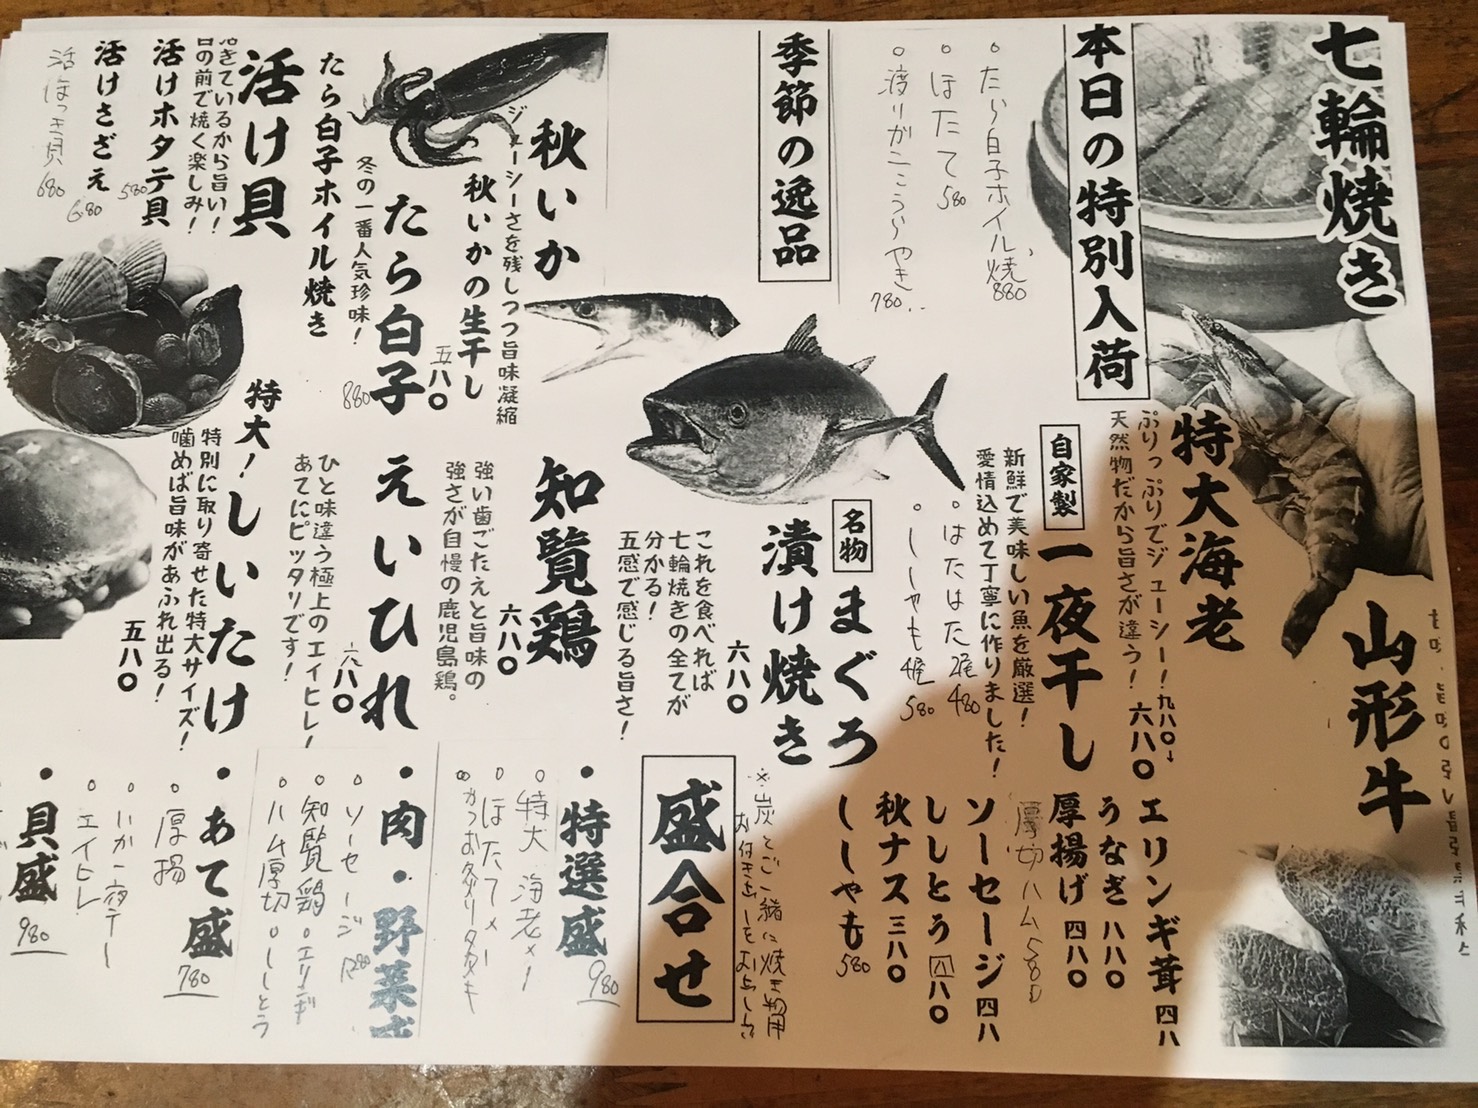 七輪焼き
本日の特別入荷
○たら白子ホイル焼
880
○ほたて 580
○渡りがにこうらやき
780
季節の逸品
秋いか
ジューシーさを残しつつ旨味凝縮
秋いかの生干し
五八〇
たら白子
冬の一番人気珍味！
たら白子ホイル焼き
880
活け貝
活きているから旨い！
目の前で焼く楽しみ！
活けホタテ貝
580
活けさざえ
680
活ほっき貝
680
山形牛
特大海老
ぷりっぷりでジューシー！九八〇↓
天然物だから旨さが違う！
六八〇
自家製
一夜干し
新鮮で美味しい魚を厳選！
愛情込めて丁寧に作りました！
○はたはた2尾 480
○ししゃも4尾 580
名物
まぐろ
漬け焼き
六八〇
これを食べれば
七輪焼きの全てが
分かる！
五感で感じる旨さ！
知覧鶏
六八〇
強い歯ごたえと旨味の
強さが自慢の鹿児島鶏。
えいひれ
六八〇
ひと味違う極上のエイヒレ！
あてにピッタリです！
特大！しいたけ
特別に取り寄せた特大サイズ！
噛めば旨味があふれ出る！
五八〇
エリンギ茸 四八
うなぎ 八八〇
厚揚げ 四八〇
厚切ハム 580
ソーセージ 四八
ししとう 四八〇
秋ナス 三八〇
ししゃも 580
※炭とご一緒に焼き物用
盛合せ
・特選盛
980
○特大海老
○ほたて
・肉・野菜
○ソーセージ
○知覧鶏 ○エリンギ
○ハム厚切 ○ししとう
・あて盛
780
○厚揚
○いか一夜干
○エイヒレ
・貝盛
980